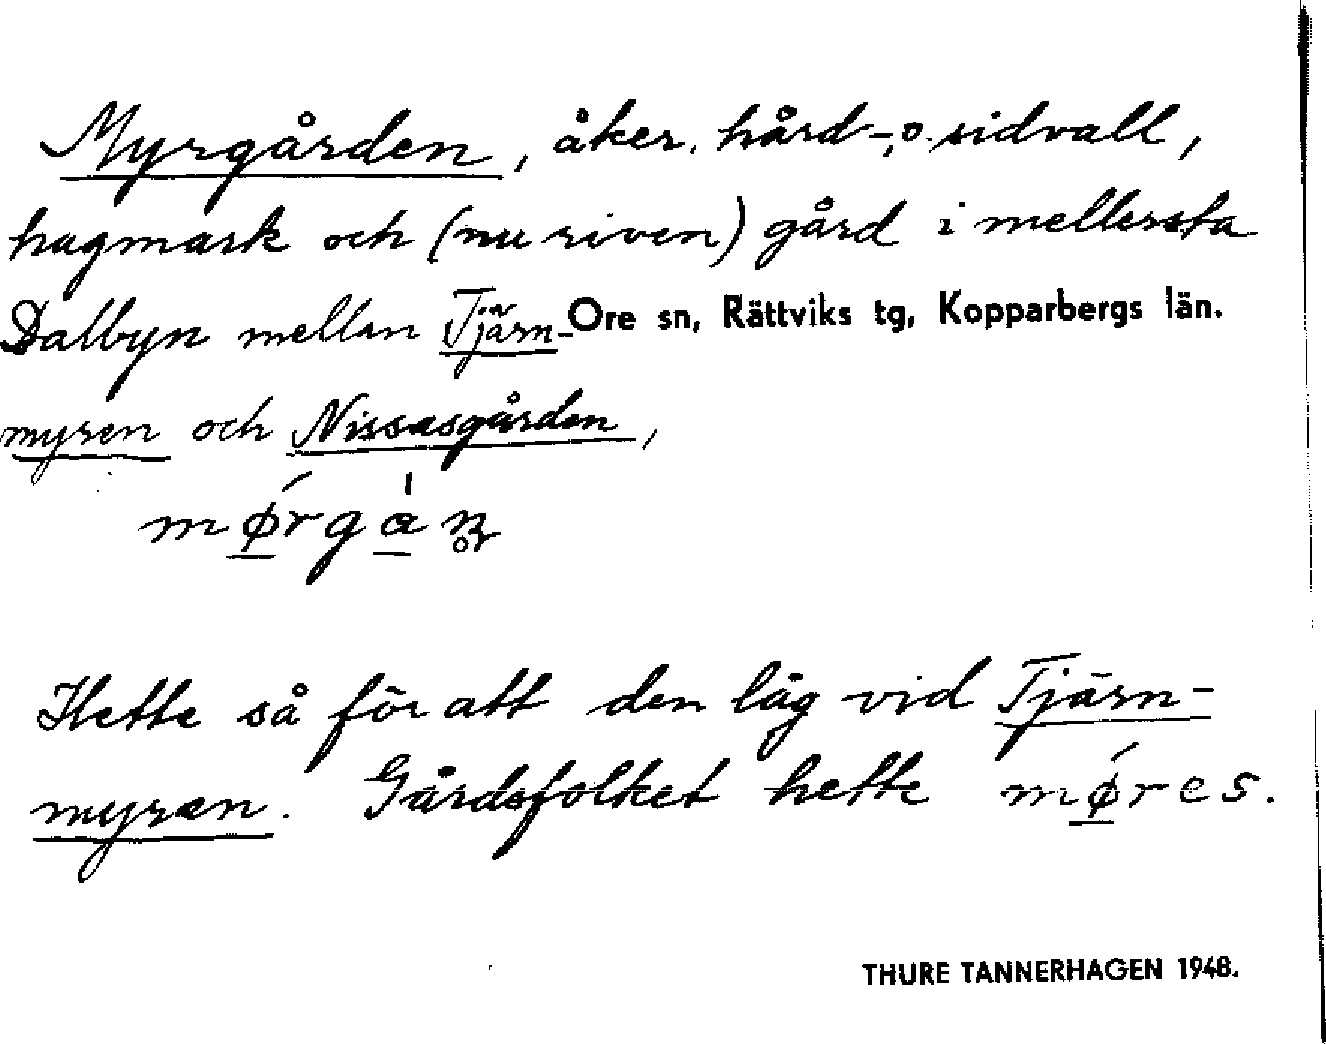 Myrgården, åker, hård-, o. sidvall,
hagmark och (nu riven) gård i mellersta
Dalbyn mellan Tjärn- Ore sn, Rättviks tg, Kopparbergs län.
myren och Nissasgården,
mørgan
Hette så för att den låg vid Tjärn-
myren. Gårdsfolket hette møres.
THURE TANNERHAGEN 1948.